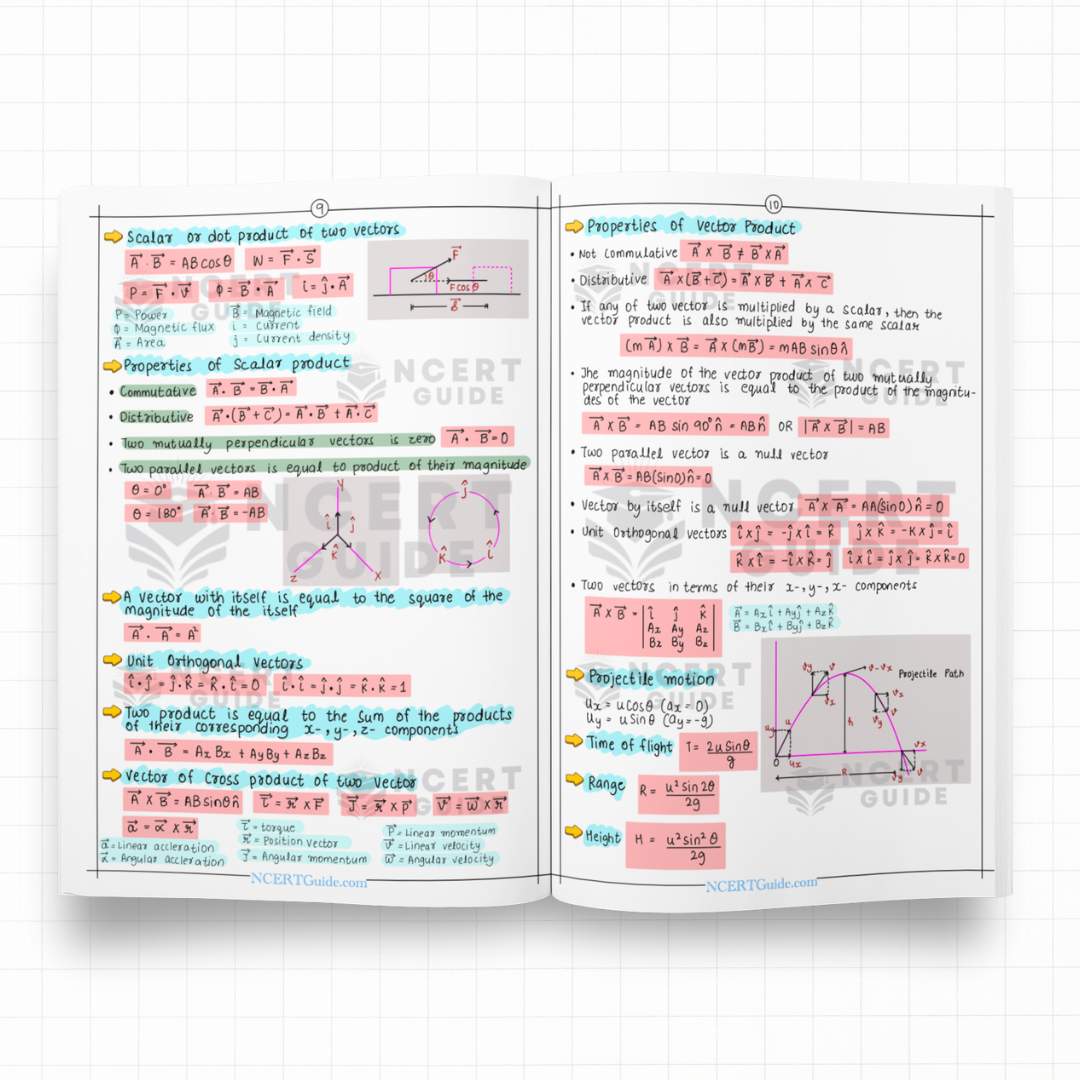 9
Scalar or dot product of two vectors
A⃗ · B⃗ = AB cosθ   W = F⃗ · S⃗
P = F⃗ · V⃗   Φ = B⃗ · A⃗   i = j⃗ · A⃗
P = Power   B⃗ = Magnetic field
Φ = Magnetic flux   i = Current
A⃗ = Area   j⃗ = Current density
F⃗
θ
F cosθ
Properties of Scalar product
• Commutative   A⃗ · B⃗ = B⃗ · A⃗
• Distributive   A⃗ · (B⃗ + C⃗) = A⃗ · B⃗ + A⃗ · C⃗
• Two mutually perpendicular vectors is zero   A⃗ · B⃗ = 0
• Two parallel vectors is equal to product of their magnitude
θ = 0°   A⃗ · B⃗ = AB
θ = 180°   A⃗ · B⃗ = -AB
Y
î ĵ
k̂
Z X
ĵ
k̂ î
A vector with itself is equal to the square of the
magnitude of the itself
A⃗ · A⃗ = A²
Unit Orthogonal Vectors
î · ĵ = ĵ · k̂ = k̂ · î = 0   î · î = ĵ · ĵ = k̂ · k̂ = 1
Two product is equal to the sum of the products
of their corresponding x-, y-, z- components
A⃗ · B⃗ = AxBx + AyBy + AzBz
Vector of Cross product of two vector
A⃗ × B⃗ = AB sinθ n̂   τ⃗ = r⃗ × F⃗   J⃗ = r⃗ × p⃗   V⃗ = w⃗ × r⃗
a⃗ = α⃗ × r⃗
τ⃗ = torque   P⃗ = Linear momentum
r⃗ = Position vector   V⃗ = Linear velocity
a⃗ = Linear accleration
α⃗ = Angular accleration   J⃗ = Angular momentum   w⃗ = Angular velocity
NCERTGuide.com
10
Properties of Vector Product
• Not Commulative   A⃗ × B⃗ ≠ B⃗ × A⃗
• Distributive   A⃗ × (B⃗ + C⃗) = A⃗ × B⃗ + A⃗ × C⃗
• If any of two vector is multiplied by a scalar, then the
vector product is also multiplied by the same scalar
(m A⃗) × B⃗ = A⃗ × (mB⃗) = mAB sinθ n̂
• The magnitude of the vector product of two mutually
perpendicular vectors is equal to the product of the magnitu-
des of the vector
A⃗ × B⃗ = AB sin 90° n̂ = AB n̂   OR   |A⃗ × B⃗| = AB
• Two parallel vector is a null vector
A⃗ × B⃗ = AB(sin0) n̂ = 0
• Vector by itself is a null vector   A⃗ × A⃗ = AA(sin0) n̂ = 0
• Unit Orthogonal vectors   î × ĵ = -ĵ × î = k̂   ĵ × k̂ = -k × ĵ = î
k̂ × î = -î × k̂ = ĵ   î × î = ĵ × ĵ = k̂ × k̂ = 0
• Two vectors in terms of their x-, y-, x- components
A⃗ × B⃗ = | î ĵ k̂ |   A⃗ = Ax î + Ay ĵ + Az k̂
| Ax Ay Az |   B⃗ = Bx î + By ĵ + Bz k̂
| Bz By Bz |
Projectile motion
ux = u cosθ (ax = 0)
uy = u sinθ (ay = -g)
Time of flight   T = 2u sinθ / g
Range   R = u² sin 2θ / 2g
Height   H = u² sin² θ / 2g
vy v   v - vx   Projectile Path
vx   vx
uy u   h   vy v
O ux   vx
R   vy v
NCERTGuide.com
NCERT
GUIDE
NCERT
GUIDE
NCERT
GUIDE
NCERT
GUIDE